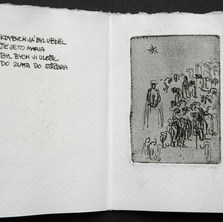 KDYBYCH JÁ BYL VĚDĚL
ŽE JE TO MARIA
BYL BYCH JI VLOŽIL
DO ZLATA DO STŘÍBRA